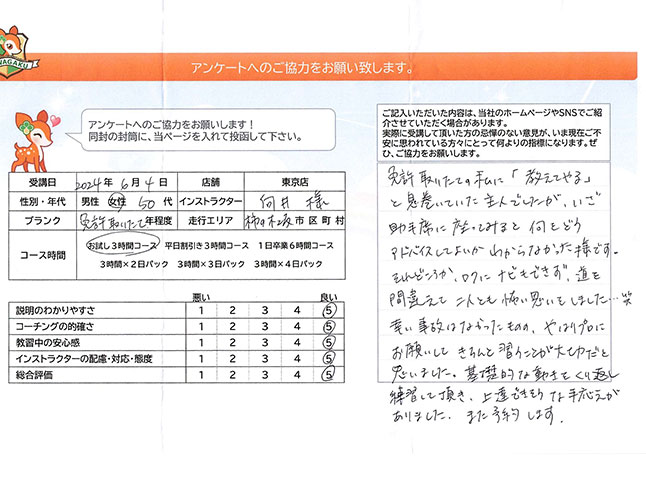 NAGAKU
アンケートへのご協力をお願い致します。
アンケートへのご協力をお願いします!
同封の封筒に、当ページを入れて投函して下さい。
受講日 2024年 6月 4日 店舗 東京店
性別・年代 男性 女性 50代 インストラクター 向井 様
ブランク 免許取りたて年程度 走行エリア 柿の木坂 市区町村
コース時間 お試し3時間コース 平日割引き3時間コース 1日卒業6時間コース
3時間×2日パック 3時間×3日パック 3時間×4日パック
悪い 良い
説明のわかりやすさ 1 2 3 4 5
コーチングの的確さ 1 2 3 4 5
教習中の安心感 1 2 3 4 5
インストラクターの配慮・対応・態度 1 2 3 4 5
総合評価 1 2 3 4 5
ご記入いただいた内容は、当社のホームページやSNSでご紹
介させていただく場合があります。
実際に受講して頂いた方の忌憚のない意見が、いま現在ご不
安に思われている方々にとって何よりの指標になります。ぜ
ひ、ご協力をお願いします。
免許取りたての私に「教えてやる」
と息巻いていた主人でしたが、いざ
助手席に座ってみると何をどう
アドバイスしてよいかわからなかった様です。
それどころか、ロクにナビもできず、道を
間違えて二人とも怖い思いをしました…笑
幸い事故はなかったものの、やはりプロに
お願いしてきちんと習うことが大切だと
思いました。基礎的な動きをくり返し
練習して頂き、上達できそうな手応えが
ありました。また予約します。